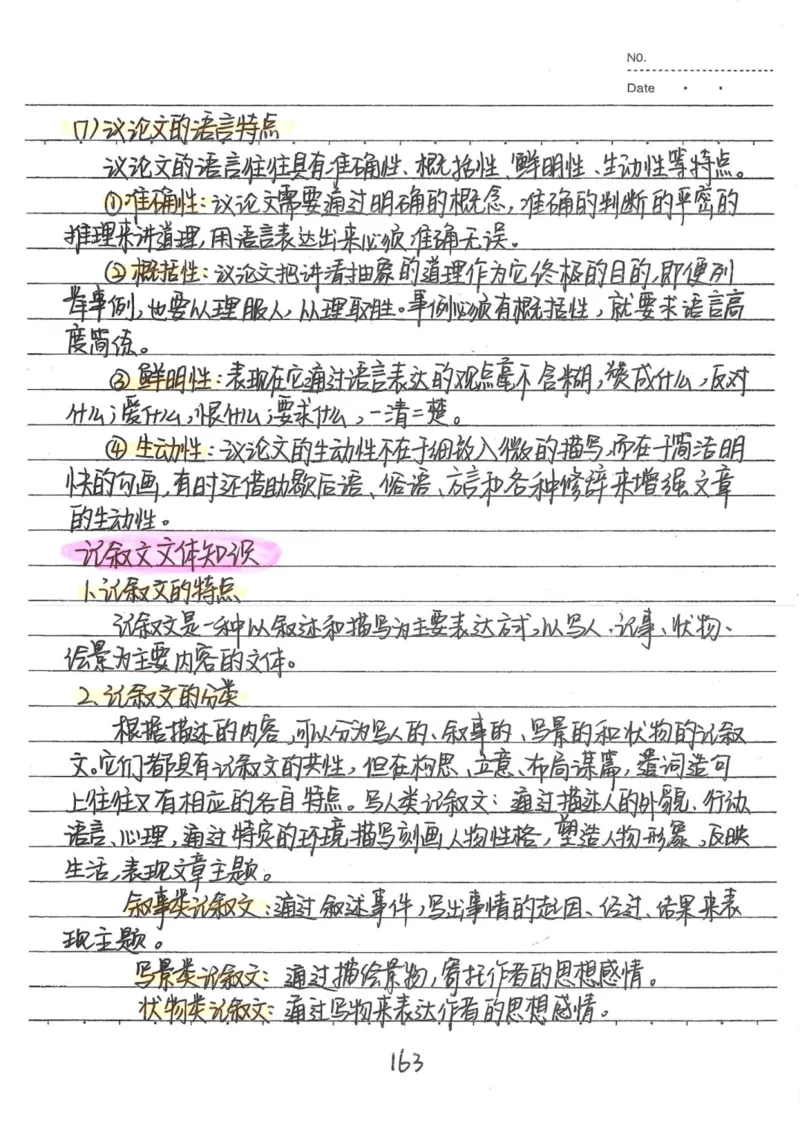 No.
Date
7)议论文的语言特点
议论文的语言往往具有准确性、概括性、鲜明性、生动性等特点。
①准确性:议论文需要通过明确的概念,准确的判断的严密的
推理来讲道理,用语言表达出来必须准确无误。
②概括性:议论文把讲清抽象的道理作为它终极的目的,即便列
举事例,也要以理服人,从理取胜。事例必须有概括性,就要求语言高
度简练。
③鲜明性:表现在它通过语言表达的观点毫不含糊,赞成什么,反对
什么;爱什么,恨什么;要求什么,一清二楚。
④生动性:议论文的生动性不在于细致入微的描写,而在于简洁明
快的勾画,有时还借助歇后语、俗语、方言和各种修辞来增强文章
的生动性。
记叙文文体知识
1、记叙文的特点
记叙文是一种以叙述和描写为主要表达方式,以写人、记事、状物、
绘景为主要内容的文体。
2、记叙文的分类
根据描述的内容,可以分为写人的、叙事的、写景的和状物的记叙
文。它们都具有记叙文的共性,但在构思、立意、布局谋篇,遣词造句
上往往又有相应的各自特点。写人类记叙文:通过描述人的外貌、行动、
语言、心理,通过特定的环境描写刻画人物性格,塑造人物形象,反映
生活,表现文章主题。
叙事类记叙文:通过叙述事件,写出事情的起因、经过、结果来表
现主题。
写景类记叙文:通过描绘景物,寄托作者的思想感情。
状物类记叙文:通过写物来表达作者的思想感情。
163